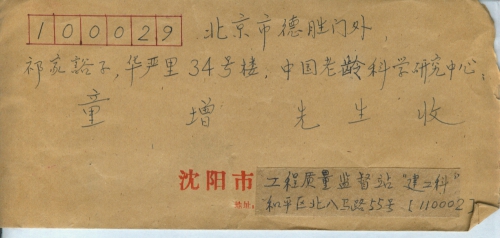 100029 北京市德胜门外,
祁家豁子,华严里34号楼,中国老龄科学研究中心:
童增先生收
沈阳市 工程质量监督站"建工科"
地址: 和平区北八马路55号 (110002)